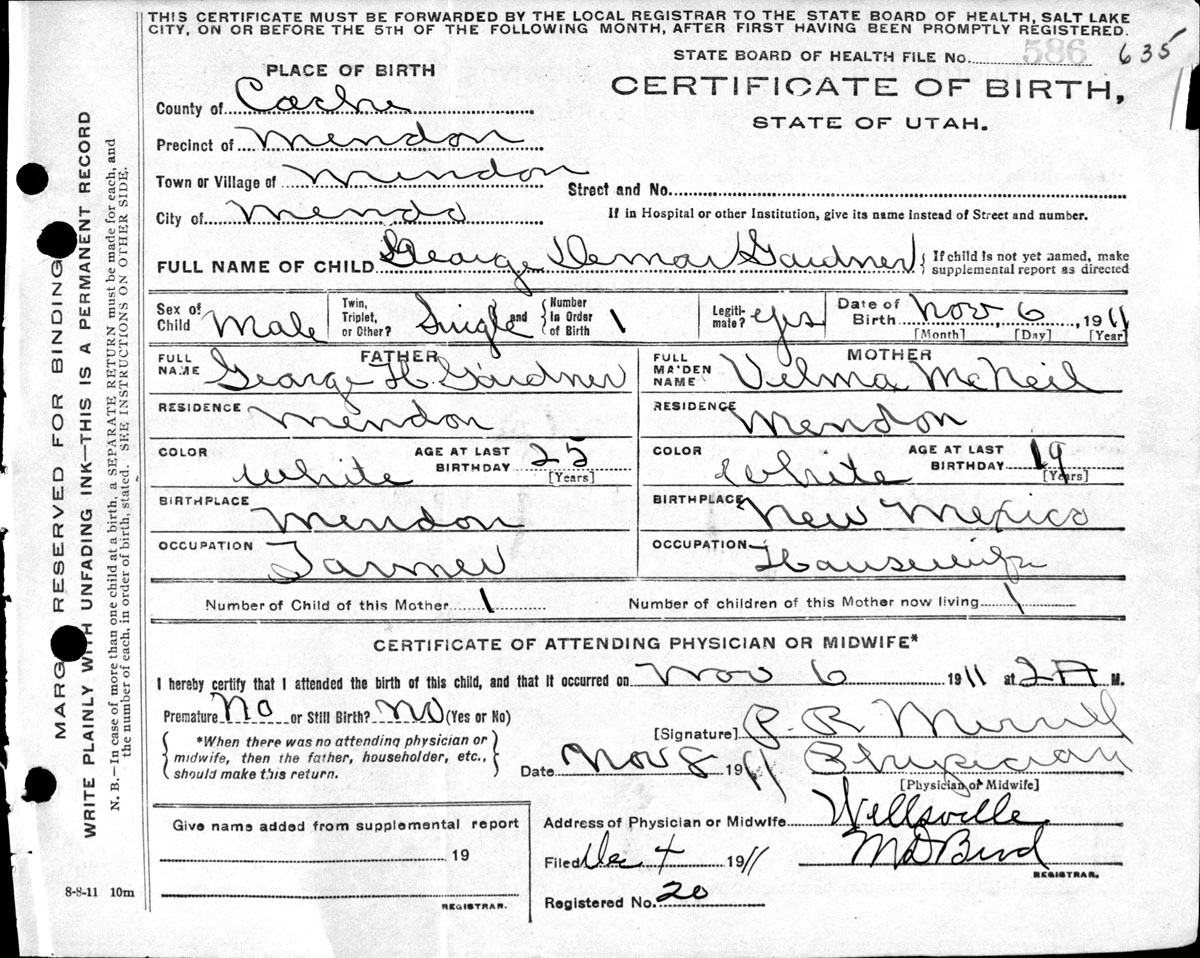 THIS CERTIFICATE MUST BE FORWARDED BY THE LOCAL REGISTRAR TO THE STATE BOARD OF HEALTH, SALT LAKE
CITY, ON OR BEFORE THE 5TH OF THE FOLLOWING MONTH, AFTER FIRST HAVING BEEN PROMPTLY REGISTERED.
STATE BOARD OF HEALTH FILE No. 586 635
PLACE OF BIRTH
CERTIFICATE OF BIRTH,
STATE OF UTAH.
County of Cache
Precinct of Mendon
Town or Village of Mendon
Street and No.
City of Mendo
If in Hospital or other Institution, give its name instead of Street and number.
FULL NAME OF CHILD George Demar Gardner { If child is not yet named, make supplemental report as directed
Sex of Child Male
Twin, Triplet, or Other? Single and { Number In Order of Birth 1
Legitimate? yes
Date of Birth Nov 6, 1911
[Month] [Day] [Year]
FATHER
FULL NAME George H. Gardner
RESIDENCE Mendon
COLOR White AGE AT LAST BIRTHDAY 25 [Years]
BIRTHPLACE Mendon
OCCUPATION Farmer
MOTHER
FULL MAIDEN NAME Velma McNeil
RESIDENCE Mendon
COLOR White AGE AT LAST BIRTHDAY 19 [Years]
BIRTHPLACE New Mexico
OCCUPATION Housewife
Number of Child of this Mother 1 Number of children of this Mother now living 1
CERTIFICATE OF ATTENDING PHYSICIAN OR MIDWIFE*
I hereby certify that I attended the birth of this child, and that it occurred on Nov 6 1911 at 2 A M.
Premature No or Still Birth? No (Yes or No)
{ *When there was no attending physician or midwife, then the father, householder, etc., should make this return. }
[Signature] Merrill
Date Nov 8 1911 Physician
[Physician or Midwife]
Address of Physician or Midwife Wellsville
Filed Dec 4 1911 M D Bird
REGISTRAR.
Registered No. 20
Give name added from supplemental report
19
REGISTRAR.
8-8-11 10m
MARGIN RESERVED FOR BINDING
WRITE PLAINLY WITH UNFADING INK—THIS IS A PERMANENT RECORD
N. B.—In case of more than one child at a birth, a SEPARATE RETURN must be made for each, and
the number of each, in order of birth, stated. SEE INSTRUCTIONS ON OTHER SIDE.